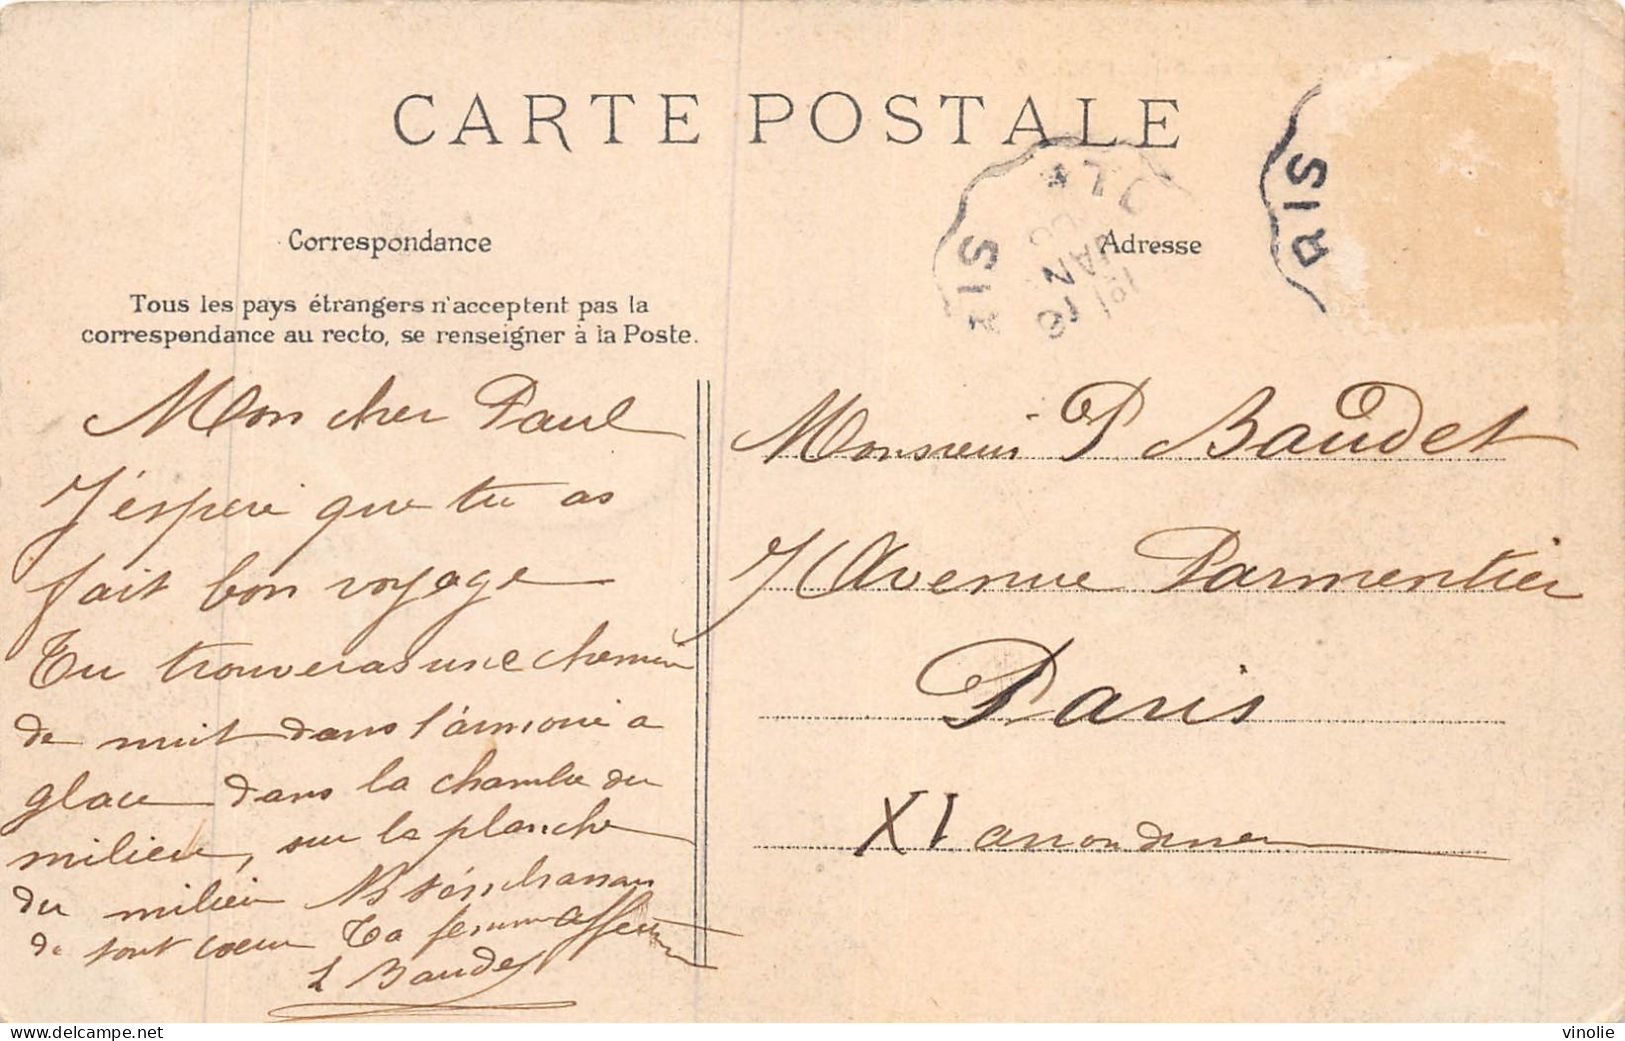 CARTE POSTALE
Correspondance
Adresse
Tous les pays étrangers n'acceptent pas la
correspondance au recto, se renseigner à la Poste.
RIS
RIS
JAN
Mon cher Paul
J'espere que tu as
fait bon voyage
Tu trouveras une chemise
de nuit dans l'armoire a
glace dans la chambre du
milieu, sur la planche
du milieu
de tout coeur Ta femme affect
L Baudet
Monsieur P Baudet
7 Avenue Parmentier
Paris
XI arrondissement
delcampe.net
vinolie